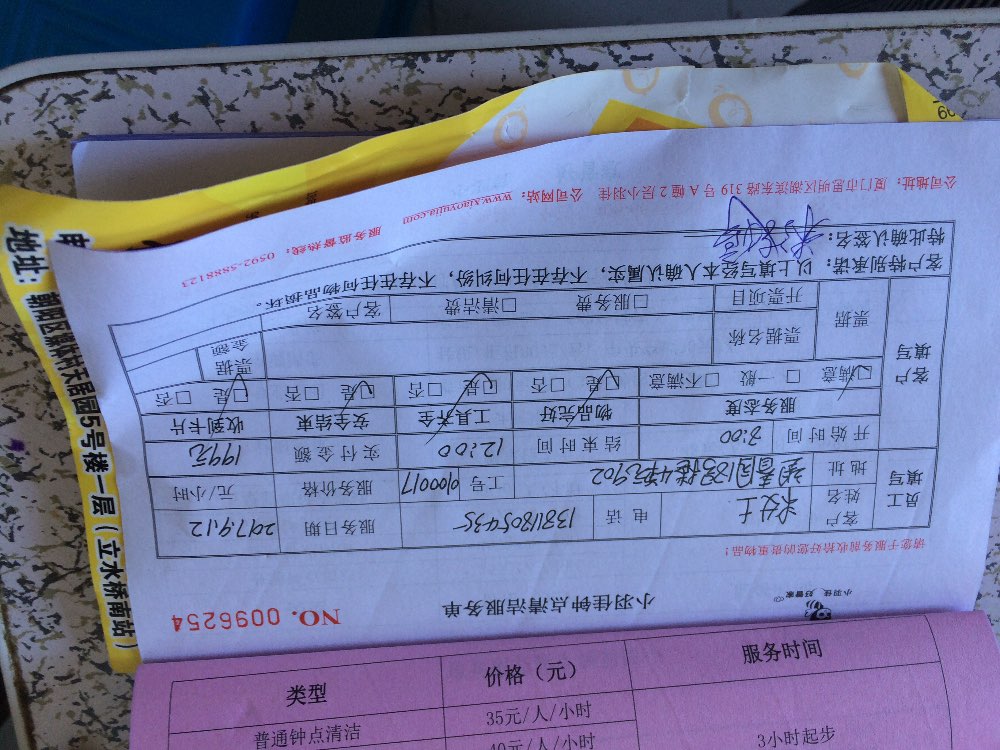 小羽佳 好管家
小羽佳钟点清洁服务单
NO. 0096254
请您于服务前收拾好您的贵重物品！
员工填写
客户姓名
女士
电话
1381805435
服务日期
2017.9.12
地址
工号
010017
服务价格
元/小时
开始时间
8:00
结束时间
12:00
实付金额
199元
客户填写
服务态度
物品完好
工具齐全
安全结束
收到卡片
☑满意 □一般 □不满意
☑是 □否
☑是 □否
☑是 □否
☑是 □否
票据
票据名称
票据金额
开票项目
□服务费 □清洁费
客户签名
客户特别承诺：以上填写经本人确认属实，不存在任何纠纷，不存在任何物品损坏。
特此确认签名：
公司地址：厦门市思明区湖滨东路 319 号 A 幢 2 层小羽佳 公司网站：www.xiaoyujia.com 服务监督热线：0592-5888123
类型
价格（元）
服务时间
普通钟点清洁
35元/人/小时
40元/人/小时
3小时起步
地址:
5号楼一层（立水桥南站）